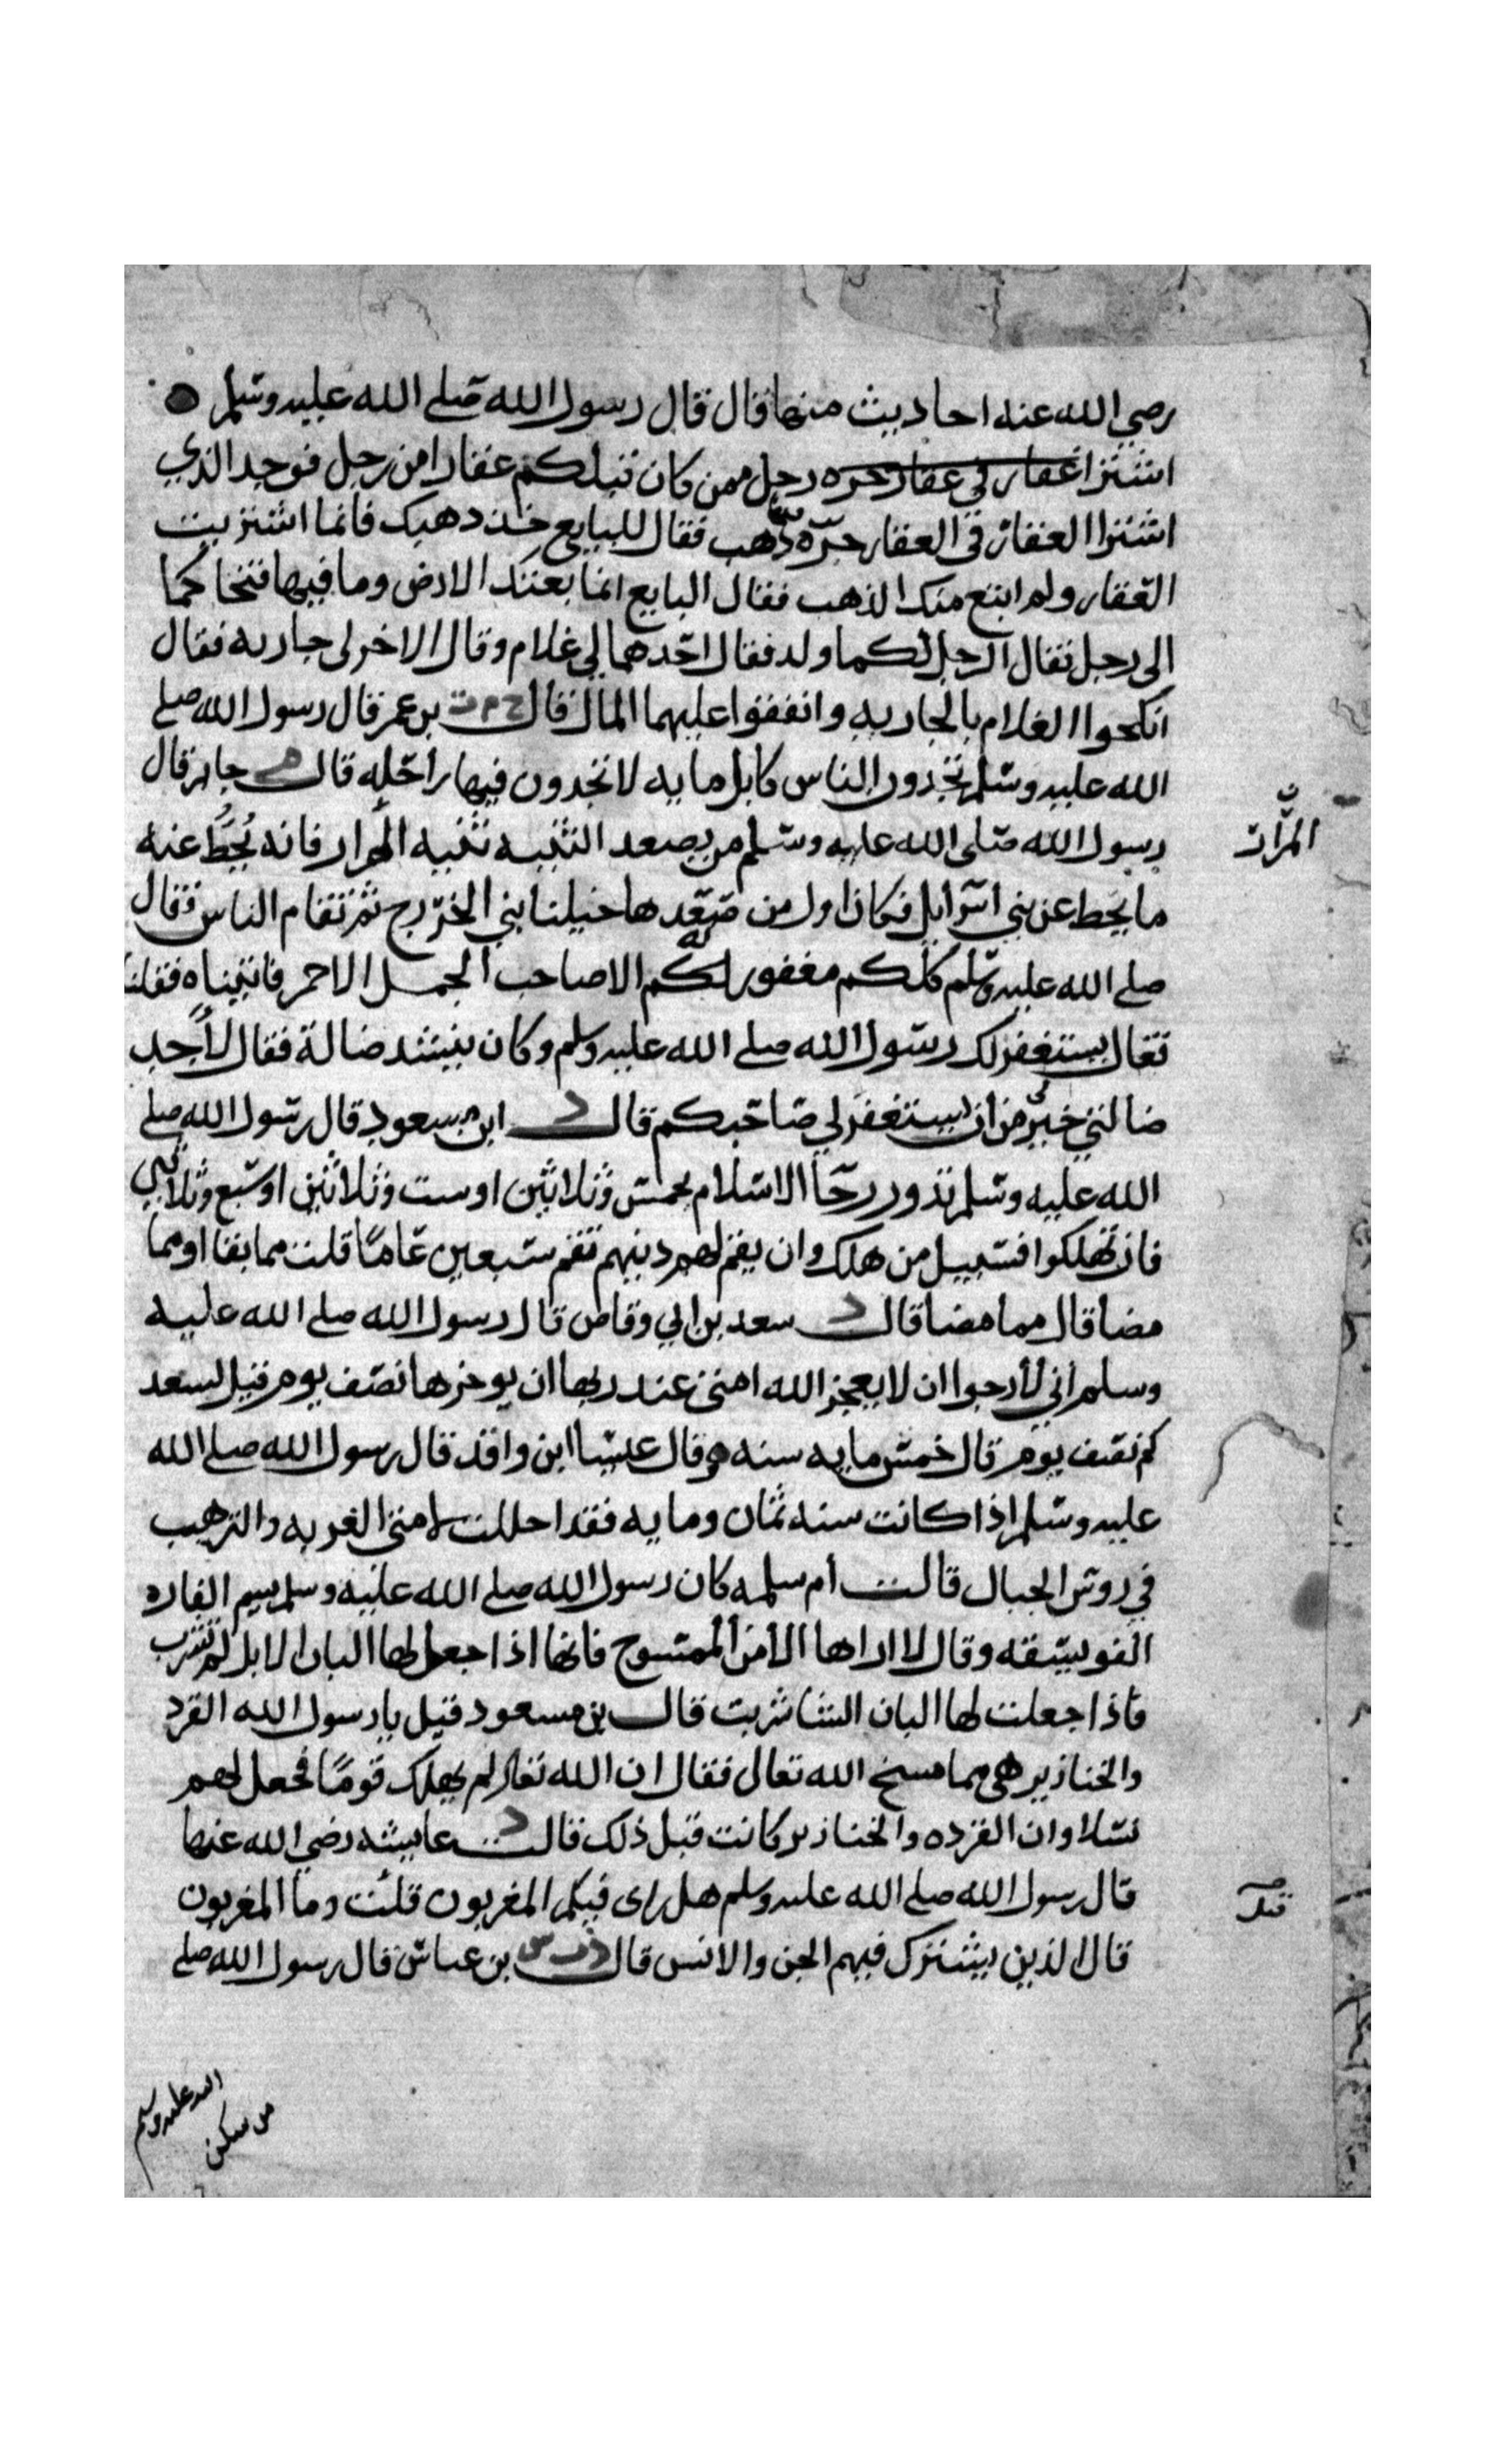 رضي الله عنه احاديث منها قال قال رسول الله صلى الله عليه وسلم
اشترا عقار في عقاره جره رجل ممن كان قبلكم عقارا من رجل فوجد الذي
اشترا العقار في العقار جرّه ذهب فقال للبايع خذ ذهبك فانما اشتريت
العقار ولم ابتع منك الذهب فقال البايع انما بعتك الارض وما فيها فتحاكما
الى رجل فقال الرجل لكما ولد فقال احدهما لي غلام وقال الاخر لي جاريه فقال
انكحوا الغلام بالجاريه وانفقوا عليهما المال قال خ م ت بن عمر قال رسول الله صلى
الله عليه وسلم تجدون الناس كابل مايه لا تجدون فيها راحله قال م جابر قال
رسول الله صلى الله عليه وسلم من يصعد الثنيه ثنيه المرار فانه يُحَطُّ عنه
المرَّات
ما يحط عن بني اسرايل فكان اول من صعدها خيلنا بني الخزرج ثم تتام الناس فقال
صلى الله عليه وسلم كلكم مغفور لكم الا صاحب الجمل الاحمر فاتيناه فقلنا
تعال يستغفر لك رسول الله صلى الله عليه وسلم وكان ينشد ضالة فقال لأجد
ضالتي خيرٌ من ان يستغفر لي صاحبكم قال د ابن مسعود قال رسول الله صلى
الله عليه وسلم تدور رحا الاسلام بخمس وثلاثين او ست وثلاثين او سبع وثلاثين
فان تهلكوا فسبيل من هلك وان يقم لهم دينهم تقم سبعين عامًا قلت مما بقا او مما
مضا قال مما مضا قال د سعد بن ابي وقاص قال رسول الله صلى الله عليه
وسلم اني لأرجوا ان لا يعجز الله امتي عند ربها ان يوخرها نصف يوم قيل لسعد
كم نصف يوم قال خمس مايه سنه وقال عيسا ابن واقد قال رسول الله صلى الله
عليه وسلم اذا كانت سنه ثمان ومايه فقد احللت لامتي الغربه والترهب
في روس الجبال قالت أم سلمه كان رسول الله صلى الله عليه وسلم يسم الفاره
الفويسقه وقال لا اراها الا من الممسوح فانها اذا جعل لها البان الابل لم تشرب
فاذا جعلت لها البان الشا شربت قال بن مسعود قيل يا رسول الله القرد
والخنازير هى مما مسخ الله تعالى فقال ان الله تعالى لم يهلك قومًا فجعل لهم
نسلا وان القرده والخنازير كانت قبل ذلك قالت د عايشه رضي الله عنها
قال رسول الله صلى الله عليه وسلم هل رى فيكم المغربون قلت وما المغربون
قال الذين يشترك فيهم الجن والانس قال بن عباس قال رسول الله صلى
الله عليه وسلم
من سكن